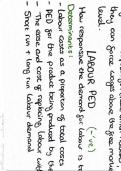 they can force wage above the free market
level.
LABOUR PED (-ve)
How responsive the demand for labour is to
Determinants:
- Labour costs as a proportion of total costs
- PED for the product being produced by the
- The ease and cost of replacing labour with
- Short run / long run labour demand